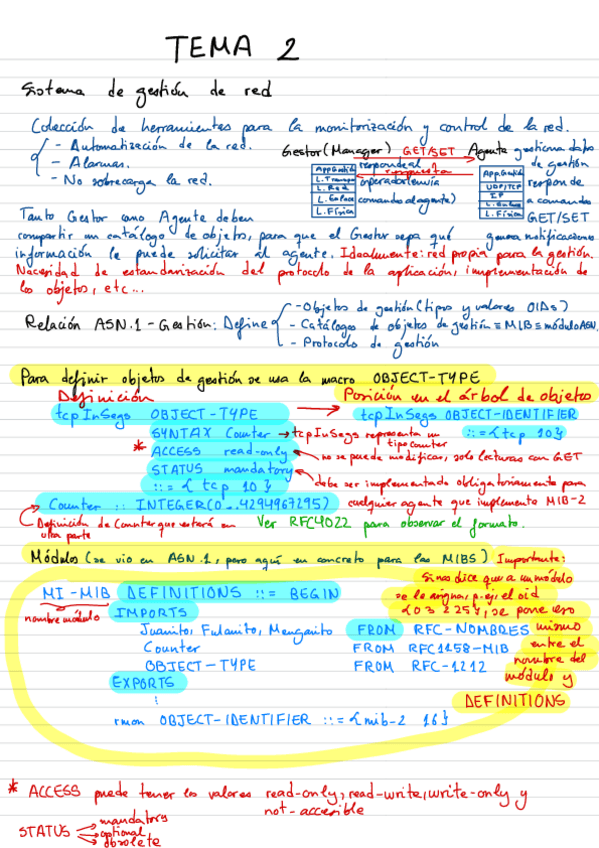 TEMA 2
Sistema de gestión de red
Colección de herramientas para la monitorización y control de la red.
- Automatización de la red.
- Alarmas.
- No sobrecarga la red.
Gestor (Manager) GET/SET Agente gestiona datos
respuesta
App Gestió
L. Transpo
L. Red
L. Enlace
L. Física
responde al
operador (envía
comando al agente)
App Gestió
UDP/TCP
IP
L. Enlace
L. Física
de gestión
responde
a comandos
GET/SET
genera notificaciones
Tanto Gestor como Agente deben
compartir un catálogo de objetos, para que el Gestor sepa qué
información le puede solicitar al agente. Idealmente: red propia para la gestión.
Necesidad de estandarización del protocolo de la aplicación, implementación de
los objetos, etc...
Relación ASN.1 - Gestión: Define
- Objetos de gestión (tipos y valores OIDs)
- Catálogos de objetos de gestión ≡ MIB ≡ módulo ASN.
- Protocolo de gestión
Para definir objetos de gestión se usa la macro OBJECT-TYPE
Definición
Posición en el árbol de objetos
tcpInSegs OBJECT-TYPE
tcpInSegs OBJECT-IDENTIFIER
::= {tcp 10}
SYNTAX Counter → tcpInSegs representa un
tipo counter
* ACCESS read-only no se puede modificar, solo lecturas con GET
STATUS mandatory
::= { tcp 10 }
debe ser implementado obligatoriamente para
cualquier agente que implemente MIB-2
Counter :: INTEGER(0..4294967295)
Definición de Counter que estará en
otra parte
Ver RFC4022 para observar el formato.
Módulos (se vio en ASN.1, pero aquí en concreto para las MIBS)
Importante:
Si nos dice que a un módulo
se le asigna, p. ej, el oid
{0 3 2 25}, se pone eso
mismo
entre el
nombre del
módulo y
DEFINITIONS
MI-MIB DEFINITIONS ::= BEGIN
nombre módulo
IMPORTS
Juanito, Fulanito, Menganito FROM RFC-NOMBRES
Counter FROM RFC1158-MIB
OBJECT-TYPE FROM RFC-1212
EXPORTS
:
rmon OBJECT-IDENTIFIER ::= {mib-2 16}
* ACCESS puede tener los valores read-only, read-write, write-only y
not-accesible
STATUS
mandatory
optional
obsolete